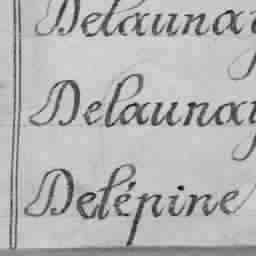 Delaunay
Delaunay
Delépine